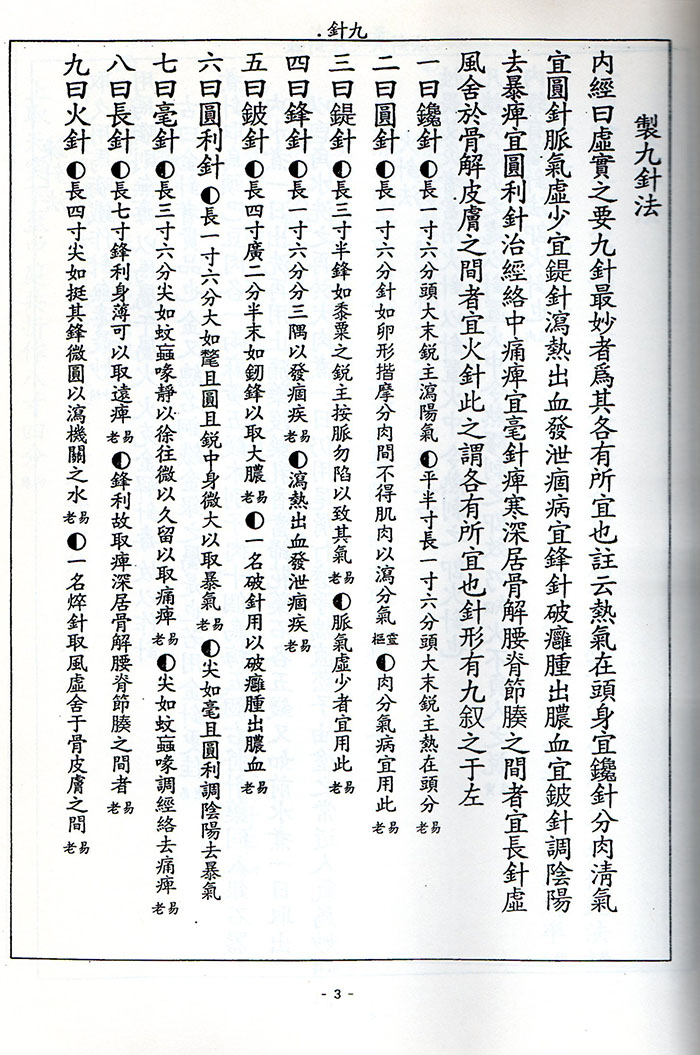 九針.
製九針法
內經曰虛實之要九針最妙者爲其各有所宜也註云熱氣在頭身宜鑱針分肉淸氣
宜圓針脈氣虛少宜鍉針瀉熱出血發泄痼病宜鋒針破癰腫出膿血宜鈹針調陰陽
去暴痺宜圓利針治經絡中痛痺宜毫針痺寒深居骨解腰脊節腠之間者宜長針虛
風舍於骨解皮膚之間者宜火針此之謂各有所宜也針形有九叙之于左
一曰鑱針◐長一寸六分頭大末鋭主瀉陽氣◐平半寸長一寸六分頭大末鋭主熱在頭分老易
二曰圓針◐長一寸六分針如卵形揩摩分肉間不得肌肉以瀉分氣樞靈◐肉分氣病宜用此老易
三曰鍉針◐長三寸半鋒如黍粟之鋭主按脈勿陷以致其氣老易◐脈氣虛少者宜用此老易
四曰鋒針◐長一寸六分分三隅以發痼疾老易◐瀉熱出血發泄痼疾老易
五曰鈹針◐長四寸廣二分半末如釰鋒以取大膿老易◐一名破針用以破癰腫出膿血老易
六曰圓利針◐長一寸六分大如氂且圓且鋭中身微大以取暴氣老易◐尖如毫且圓利調陰陽去暴氣
七曰毫針◐長三寸六分尖如蚊蝱喙靜以徐往微以久留以取痛痺老易◐尖如蚊蝱喙調經絡去痛痺老易
八曰長針◐長七寸鋒利身薄可以取遠痺老易◐鋒利故取痺深居骨解腰脊節腠之間者老易
九曰火針◐長四寸尖如挺其鋒微圓以瀉機關之水老易◐一名焠針取風虛舍于骨皮膚之間老易
- 3 -